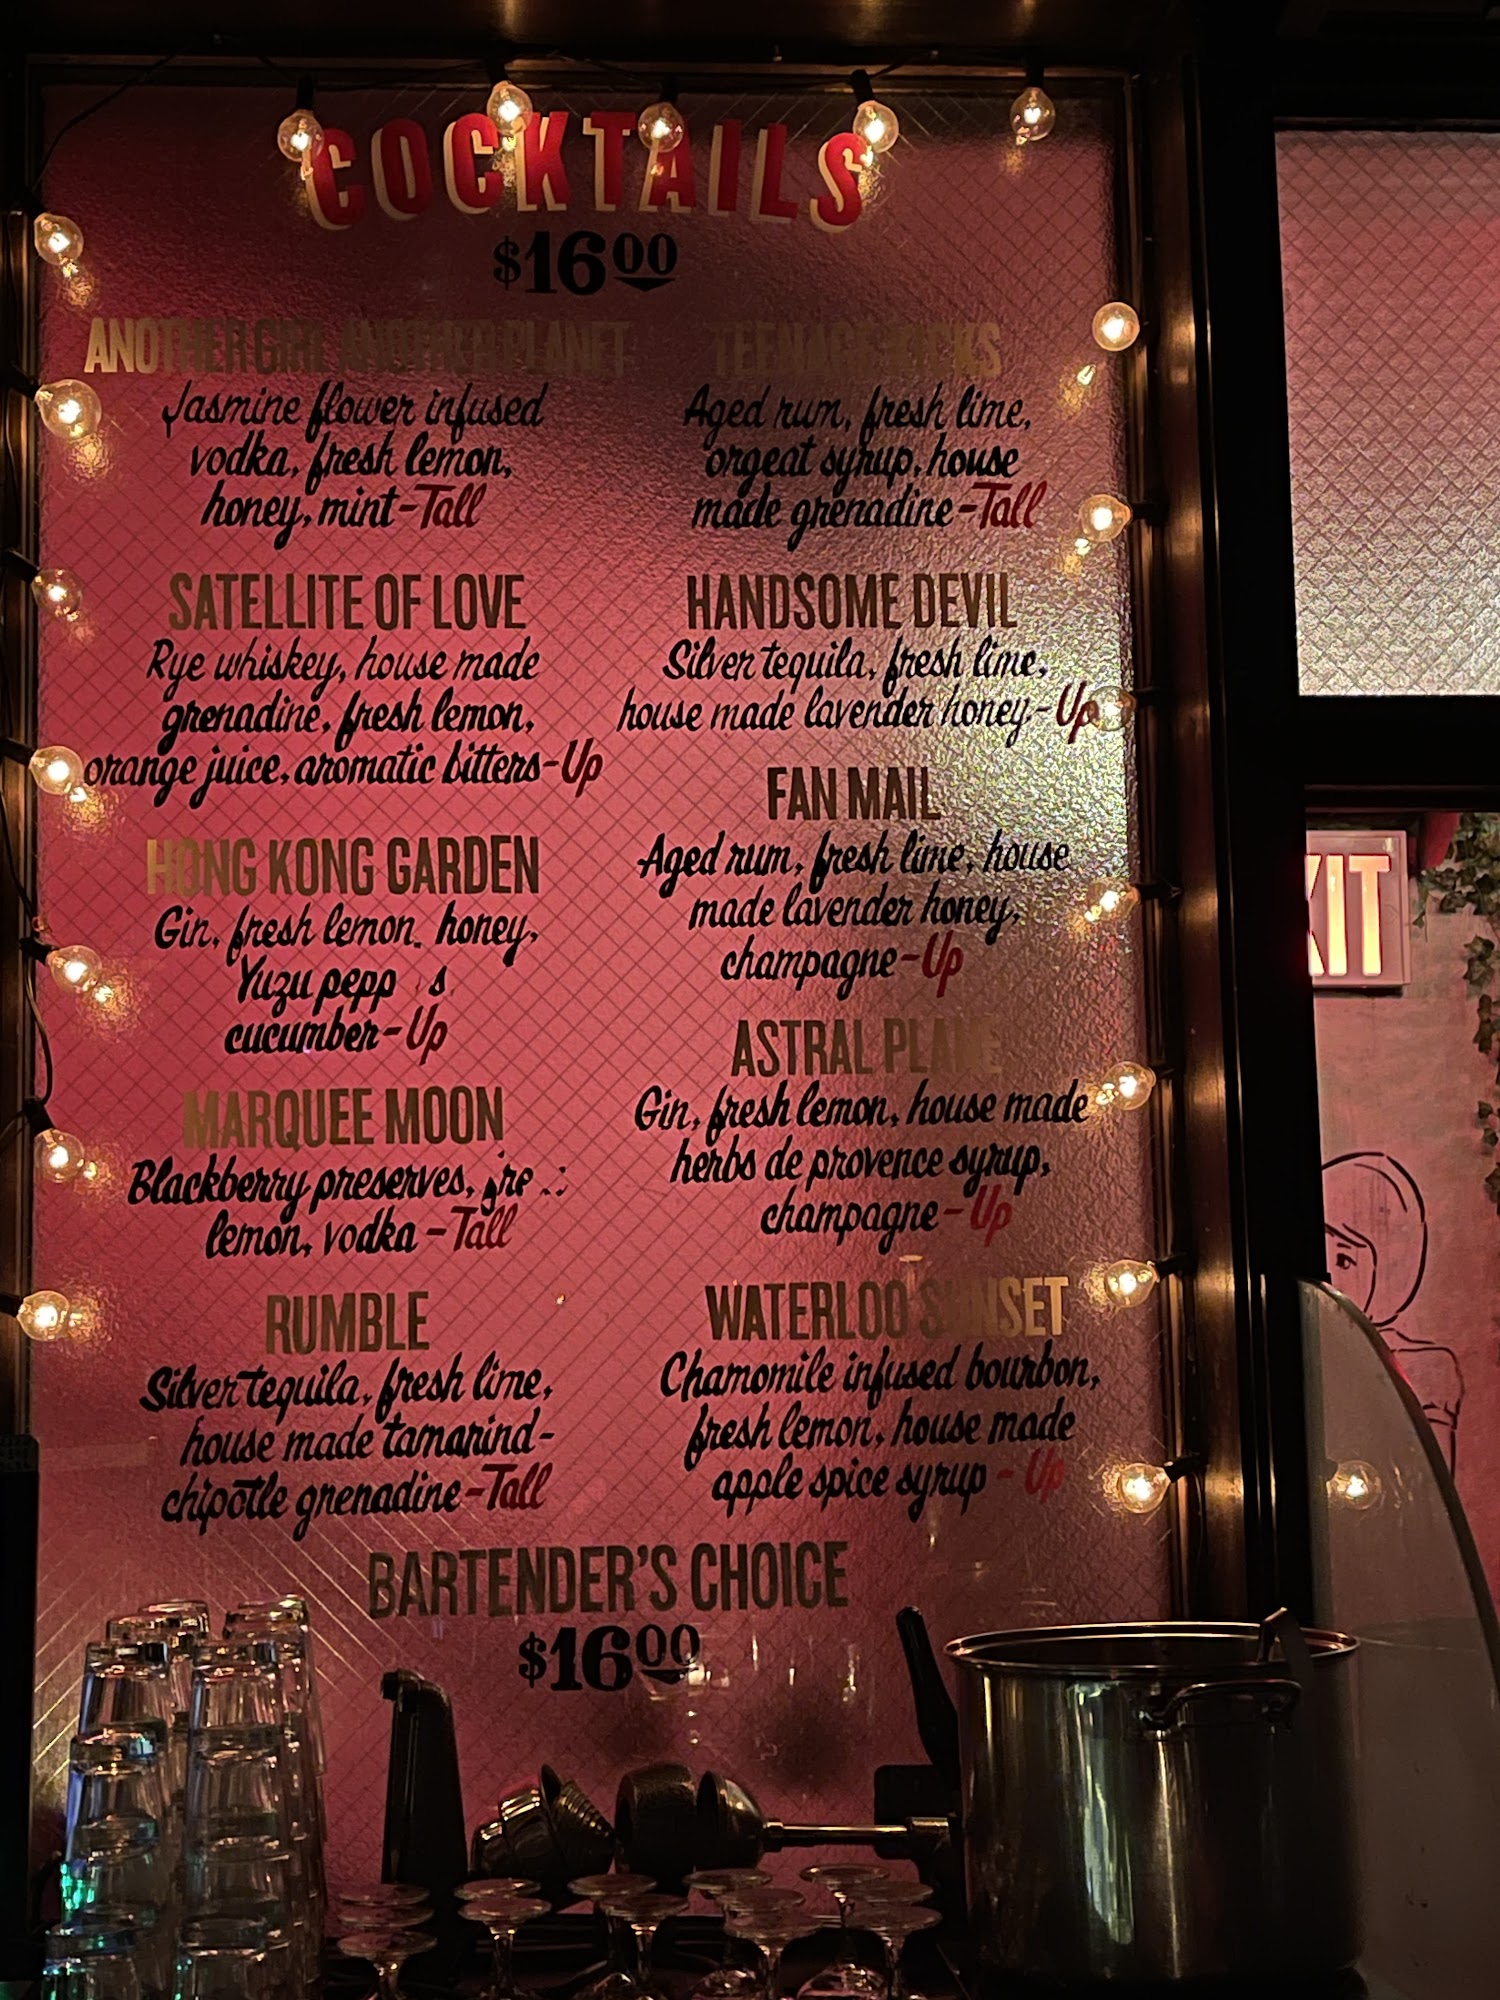 COCKTAILS
$16.00
ANOTHER GIRL ANOTHER PLANET
Jasmine flower infused
vodka, fresh lemon,
honey, mint-Tall
SATELLITE OF LOVE
Rye whiskey, house made
grenadine, fresh lemon,
orange juice, aromatic bitters-Up
HONG KONG GARDEN
Gin, fresh lemon, honey,
Yuzu
cucumber-Up
MARQUEE MOON
Blackberry preserves,
lemon, vodka-Tall
RUMBLE
Silver tequila, fresh lime,
house made tamarind-
chipotle grenadine-Tall
TEENAGE KICKS
Aged rum, fresh lime,
orgeat syrup, house
made grenadine-Tall
HANDSOME DEVIL
Silver tequila, fresh lime,
house made lavender honey,-Up
FAN MAIL
Aged rum, fresh lime, house
made lavender honey,
champagne-Up
ASTRAL PLANE
Gin, fresh lemon, house made
herbs de provence syrup,
champagne-Up
WATERLOO SUNSET
Chamomile infused bourbon,
fresh lemon, house made
apple spice syrup - Up
BARTENDER'S CHOICE
$16.00
XIT